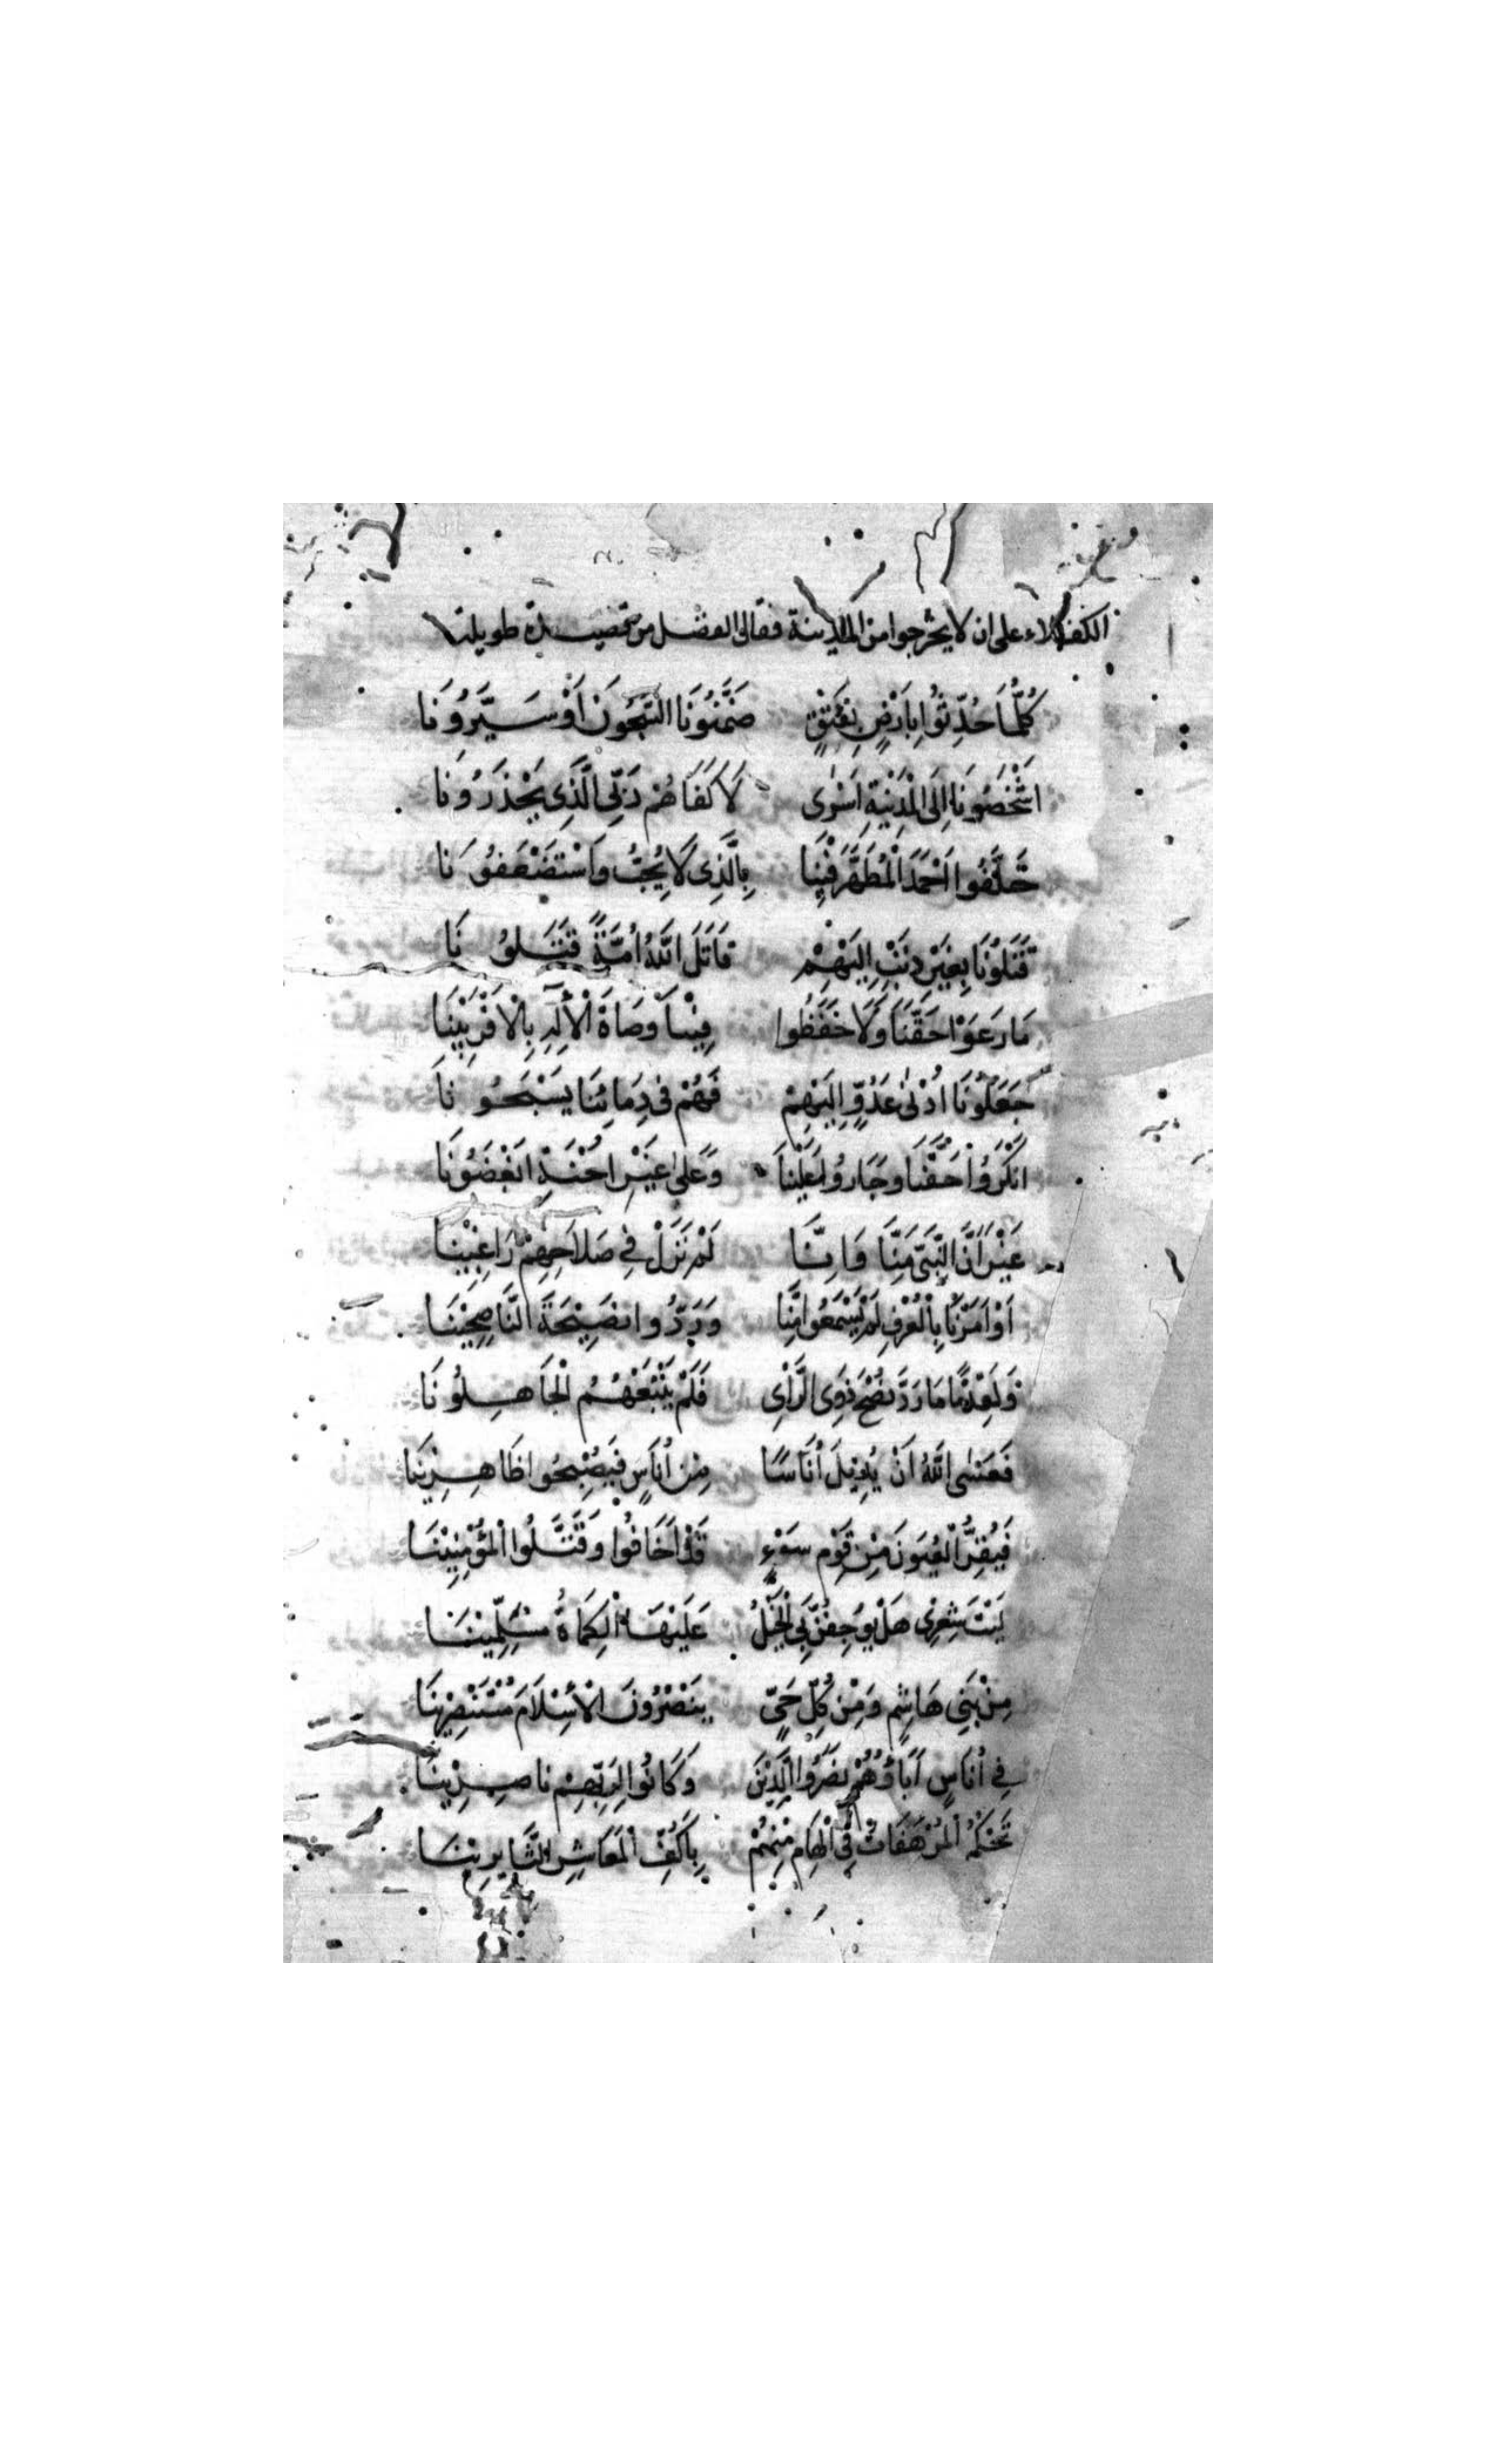 الكفلاء على ان لا يخرجوا من المدينة فقال الفضل من قصيدة طويلة
كُلَّمَا حُدِّثُوا بِاَرْضٍ نِقَيْقٍ ضَمَّنُونَا السُّجُونَ اَوْ سَيَّرُونَا
اَشْخَصُونَا اِلَى الْمَدِيْنَةِ اَسْرٰى لَا كَفَاهُمْ رَبِّى الَّذِى يَحْذَرُونَا
خَلَّفُوا اَحْمَدَ الْمُطَهَّرَ فِيْنَا بِالَّذِى لَا يُحِبُّ وَاسْتَضْعَفُونَا
قَتَلُونَا بِغَيْرِ ذَنْبٍ اِلَيْهِمْ قَاتَلَ اللّٰهُ اُمَّةً قَتَلُونَا
مَا رَعَوْا حَقَّنَا وَلَا حَفَظُوا فِيْنَا وَصَاةَ الْأِلَهِ بِالْاَقْرَبِيْنَا
جَعَلُونَا اَدْنٰى عَدُوٍّ اِلَيْهِمْ فَهُمْ فى دِمَائِنَا يَسْبَحُونَا
اَنْكَرُوْا حَقَّنَا وَجَارُوْا عَلَيْنَا وَعَلٰى غَيْرِ اِحْنَةٍ اَبْغَضُونَا
غَيْرَ اَنَّ النَّبِىَّ مِنَّا وَاِنَّا لَمْ نَزَلْ فِى صَلَاحِهِمْ رَاغِبِيْنَا
اَوْ اَمَرْنَا بِالْعُرْفِ لَمْ يَسْمَعُوا مِنَّا وَرَدُّوا نَصِيْحَةَ النَّاصِحِيْنَا
وَلَقِدْمًا مَا رَدَّ نُصْحَ ذَوِى الرَّأْىِ فَلَمْ يَتْبَعْهُمُ الْجَاهِلُونَا
فَعَسَى اللّٰهُ اَنْ يُدِيْلَ اُنَاسًا مِنْ اُنَاسٍ فَيُصْبِحُوا ظَاهِرِيْنَا
فَيُقِرَّ الْعُيُونَ مِنْ قَوْمِ سَوْءٍ قَدْ اَخَافُوا وَقَتَّلُوا الْمُؤْمِنِيْنَا
لَيْتَ شِعْرِى هَلْ يُوجِفَنْ بِىَ الْخَيْلُ عَلَيْهَا الْكِمَاةُ مُسْتَلْئِمِيْنَا
مِنْ بَنِى هَاشِمٍ وَمِنْ كُلِّ حَىٍّ يَنْصُرُونَ الْأِسْلَامَ مُسْتَنْصِرِيْنَا
فِى اُنَاسٍ اٰبَاؤُهُمْ نَصَرُوا الدِّيْنَ وَكَانُوا لِرَبِّهِمْ نَاصِرِيْنَا
تَحْكُمُ الْمُرْهَفَاتُ فِى الْهَامِ مِنْهُمْ بِاَكُفِّ الْمَعَاشِرِ الثَّايِرِيْنَا